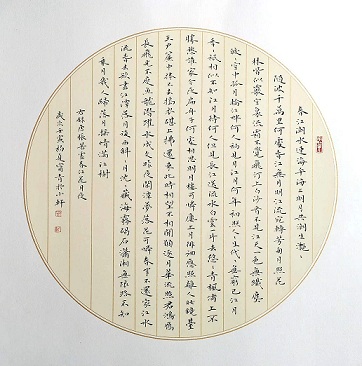 春江潮水連海平海上明月共潮生灩灩
隨波千萬里何處春江無月明江流宛轉繞芳甸月照花
林皆似霰空裏流霜不覺飛汀上白沙看不見江天一色無纖塵
皎皎空中孤月輪江畔何人初見月江月何年初照人人生代代無窮已江月
年年祇相似不知江月待何人但見長江送流水白雲一片去悠悠青楓浦上不
勝愁誰家今夜扁舟子何處相思明月樓可憐樓上月徘徊應照離人妝鏡臺
玉戶簾中捲不去搗衣砧上拂還來此時相望不相聞願逐月華流照君鴻雁
長飛光不度魚龍潛躍水成文昨夜閒潭夢落花可憐春半不還家江水
流春去欲盡江潭落月復西斜斜月沉沉藏海霧碣石瀟湘無限路不知
乘月幾人歸落月搖情滿江樹
唐張若虛春江花月夜
歲次